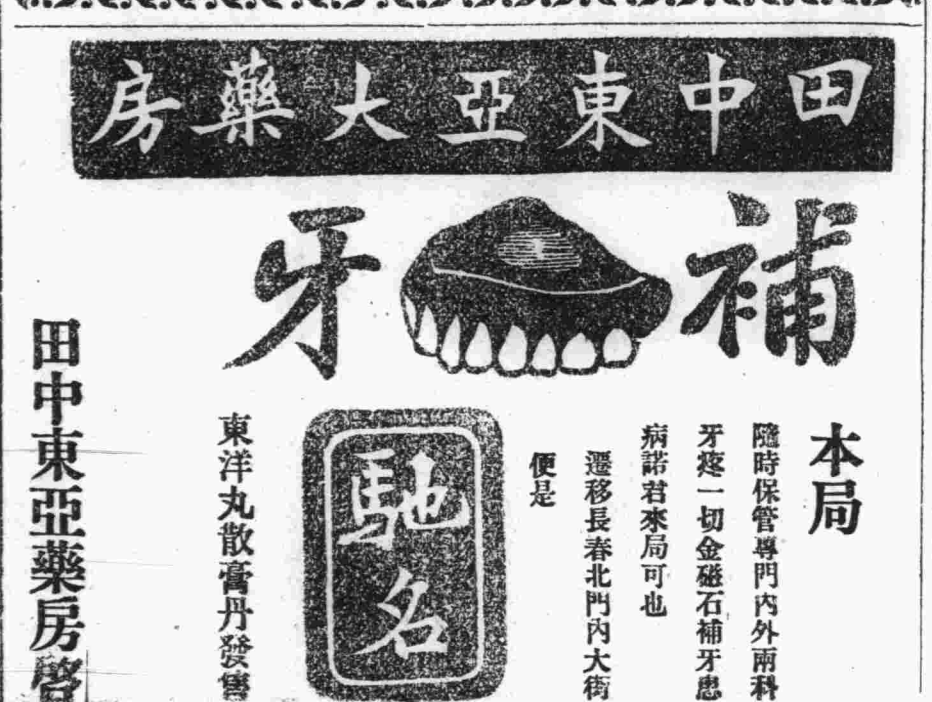 田中東亞大藥房
補牙
本局
隨時保管專門內外兩科
牙疼一切金磁石補牙患
病諸君來局可也
遷移長春北門內大街
便是
馳名
東洋丸散膏丹發售
田中東亞藥房啓